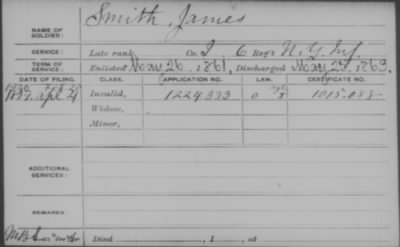 NAME OF SOLDIER: Smith, James
SERVICE: Late rank, Co. I, 6 Reg't N.Y. Inf.
TERM OF SERVICE: Enlisted May 26, 1861, Discharged May 1863.
DATE OF FILING. CLASS. APPLICATION NO. LAW. CERTIFICATE NO.
Apl 4 Invalid, 1224,333 1015.083
Widow,
Minor,
ADDITIONAL SERVICES:
REMARKS:
Died , 1 , at